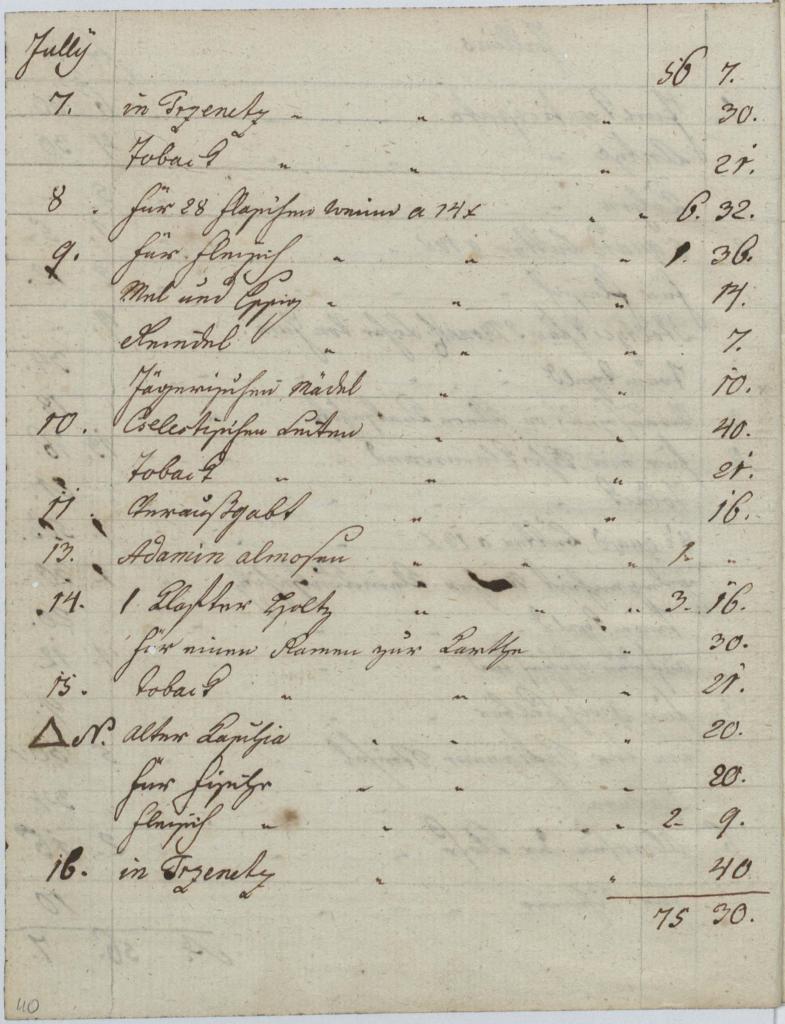 Jullÿ
56 7.
7. in Trzenetz " " " 30.
Toback " " " 21.
8. für 28 flaschen weine a 14x " " 6. 32.
9. für fleisch " " " 1. 36.
Mel und " " " 14.
Reindel " " " 7.
Jägerischen Mädel " " 10.
10. Coelestischen Leüten " " 40.
Toback " " " 21.
11. Veraußgabt " " 16.
13. Adamin almosen " " " 1- "
14. 1 Klafter Holtz " " " 3- 16.
für einen Ramen zur Carthe " 30.
15. toback " " " 21.
△ N. alter " " " 20.
für fische " " " 20.
fleisch " " " " 2- 9.
16. in Trzenetz " " 40
75 30.
40